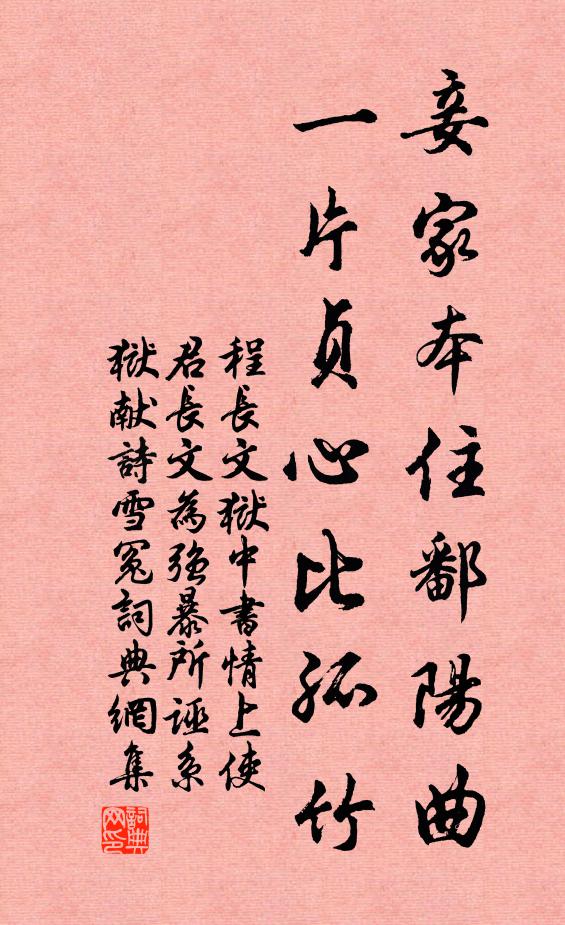 妾家本住鄱陽曲
一片貞心比孤竹
程長文獄中書情上使
君長文為強暴所誣系
獄献詩雪冤詞典網集
詞典网印